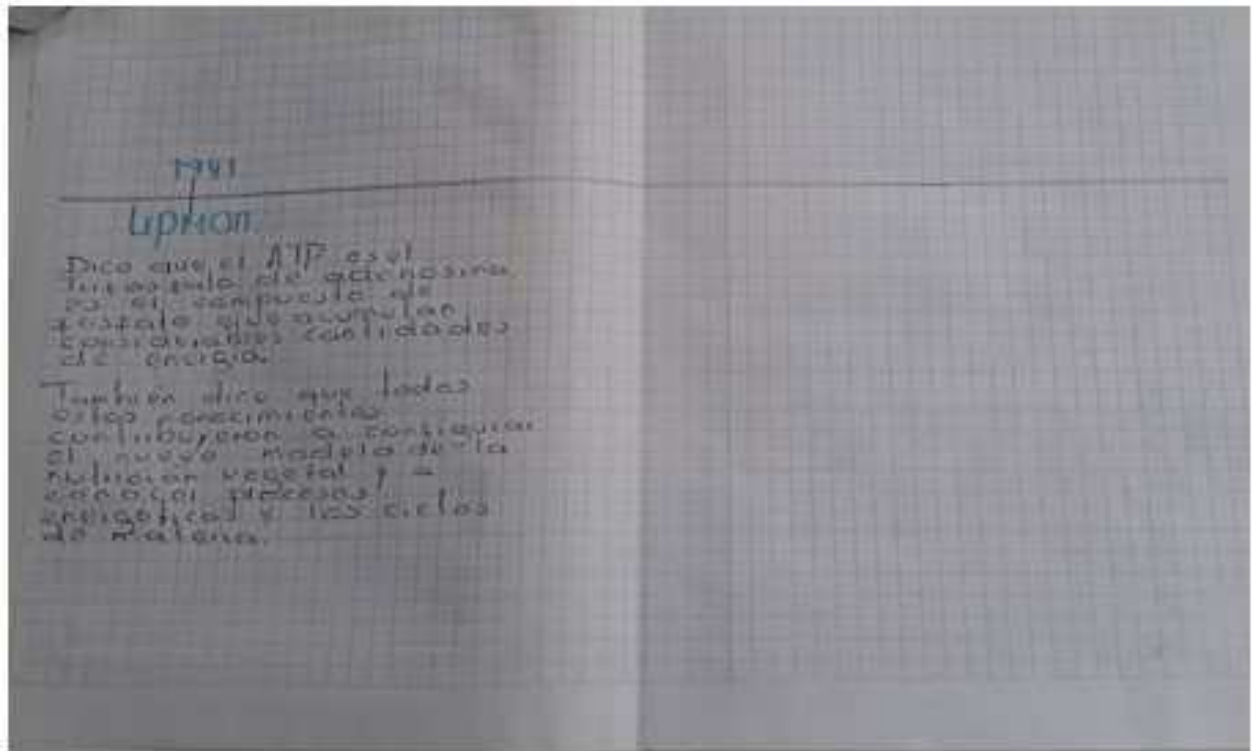 1941
Lipmon.
Dice que el ATP es el
trifosfato de adenosina
es el compuesto de
fosfato que acumulan
considerables cantidades
de energia.
También dice que todos
estos conocimientos
contribuyeron a conseguir
el nuevo modelo de la
nutrición vegetal y -
conocer procesos
energéticos y los ciclos
de materia.